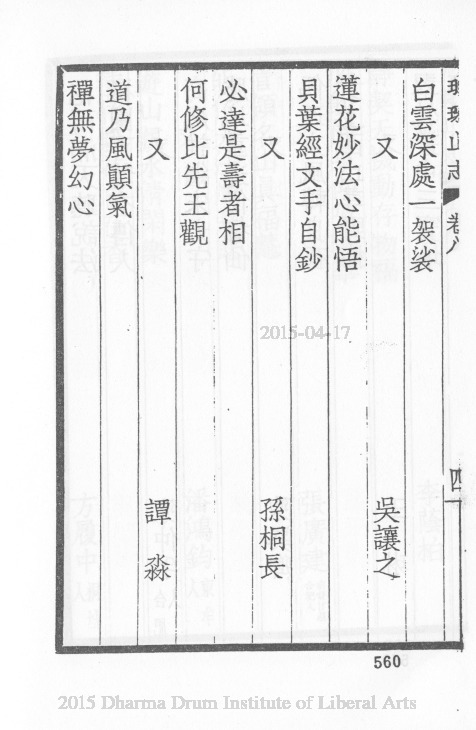 琅琊山志 卷八 四
白雲深處一袈裟
又 吳讓之
蓮花妙法心能悟
貝葉經文手自鈔
又 孫桐長
必達是壽者相
何修比先王觀
又 譚淼
道乃風顛氣
禪無夢幻心
560
2015-04-17
2015 Dharma Drum Institute of Liberal Arts